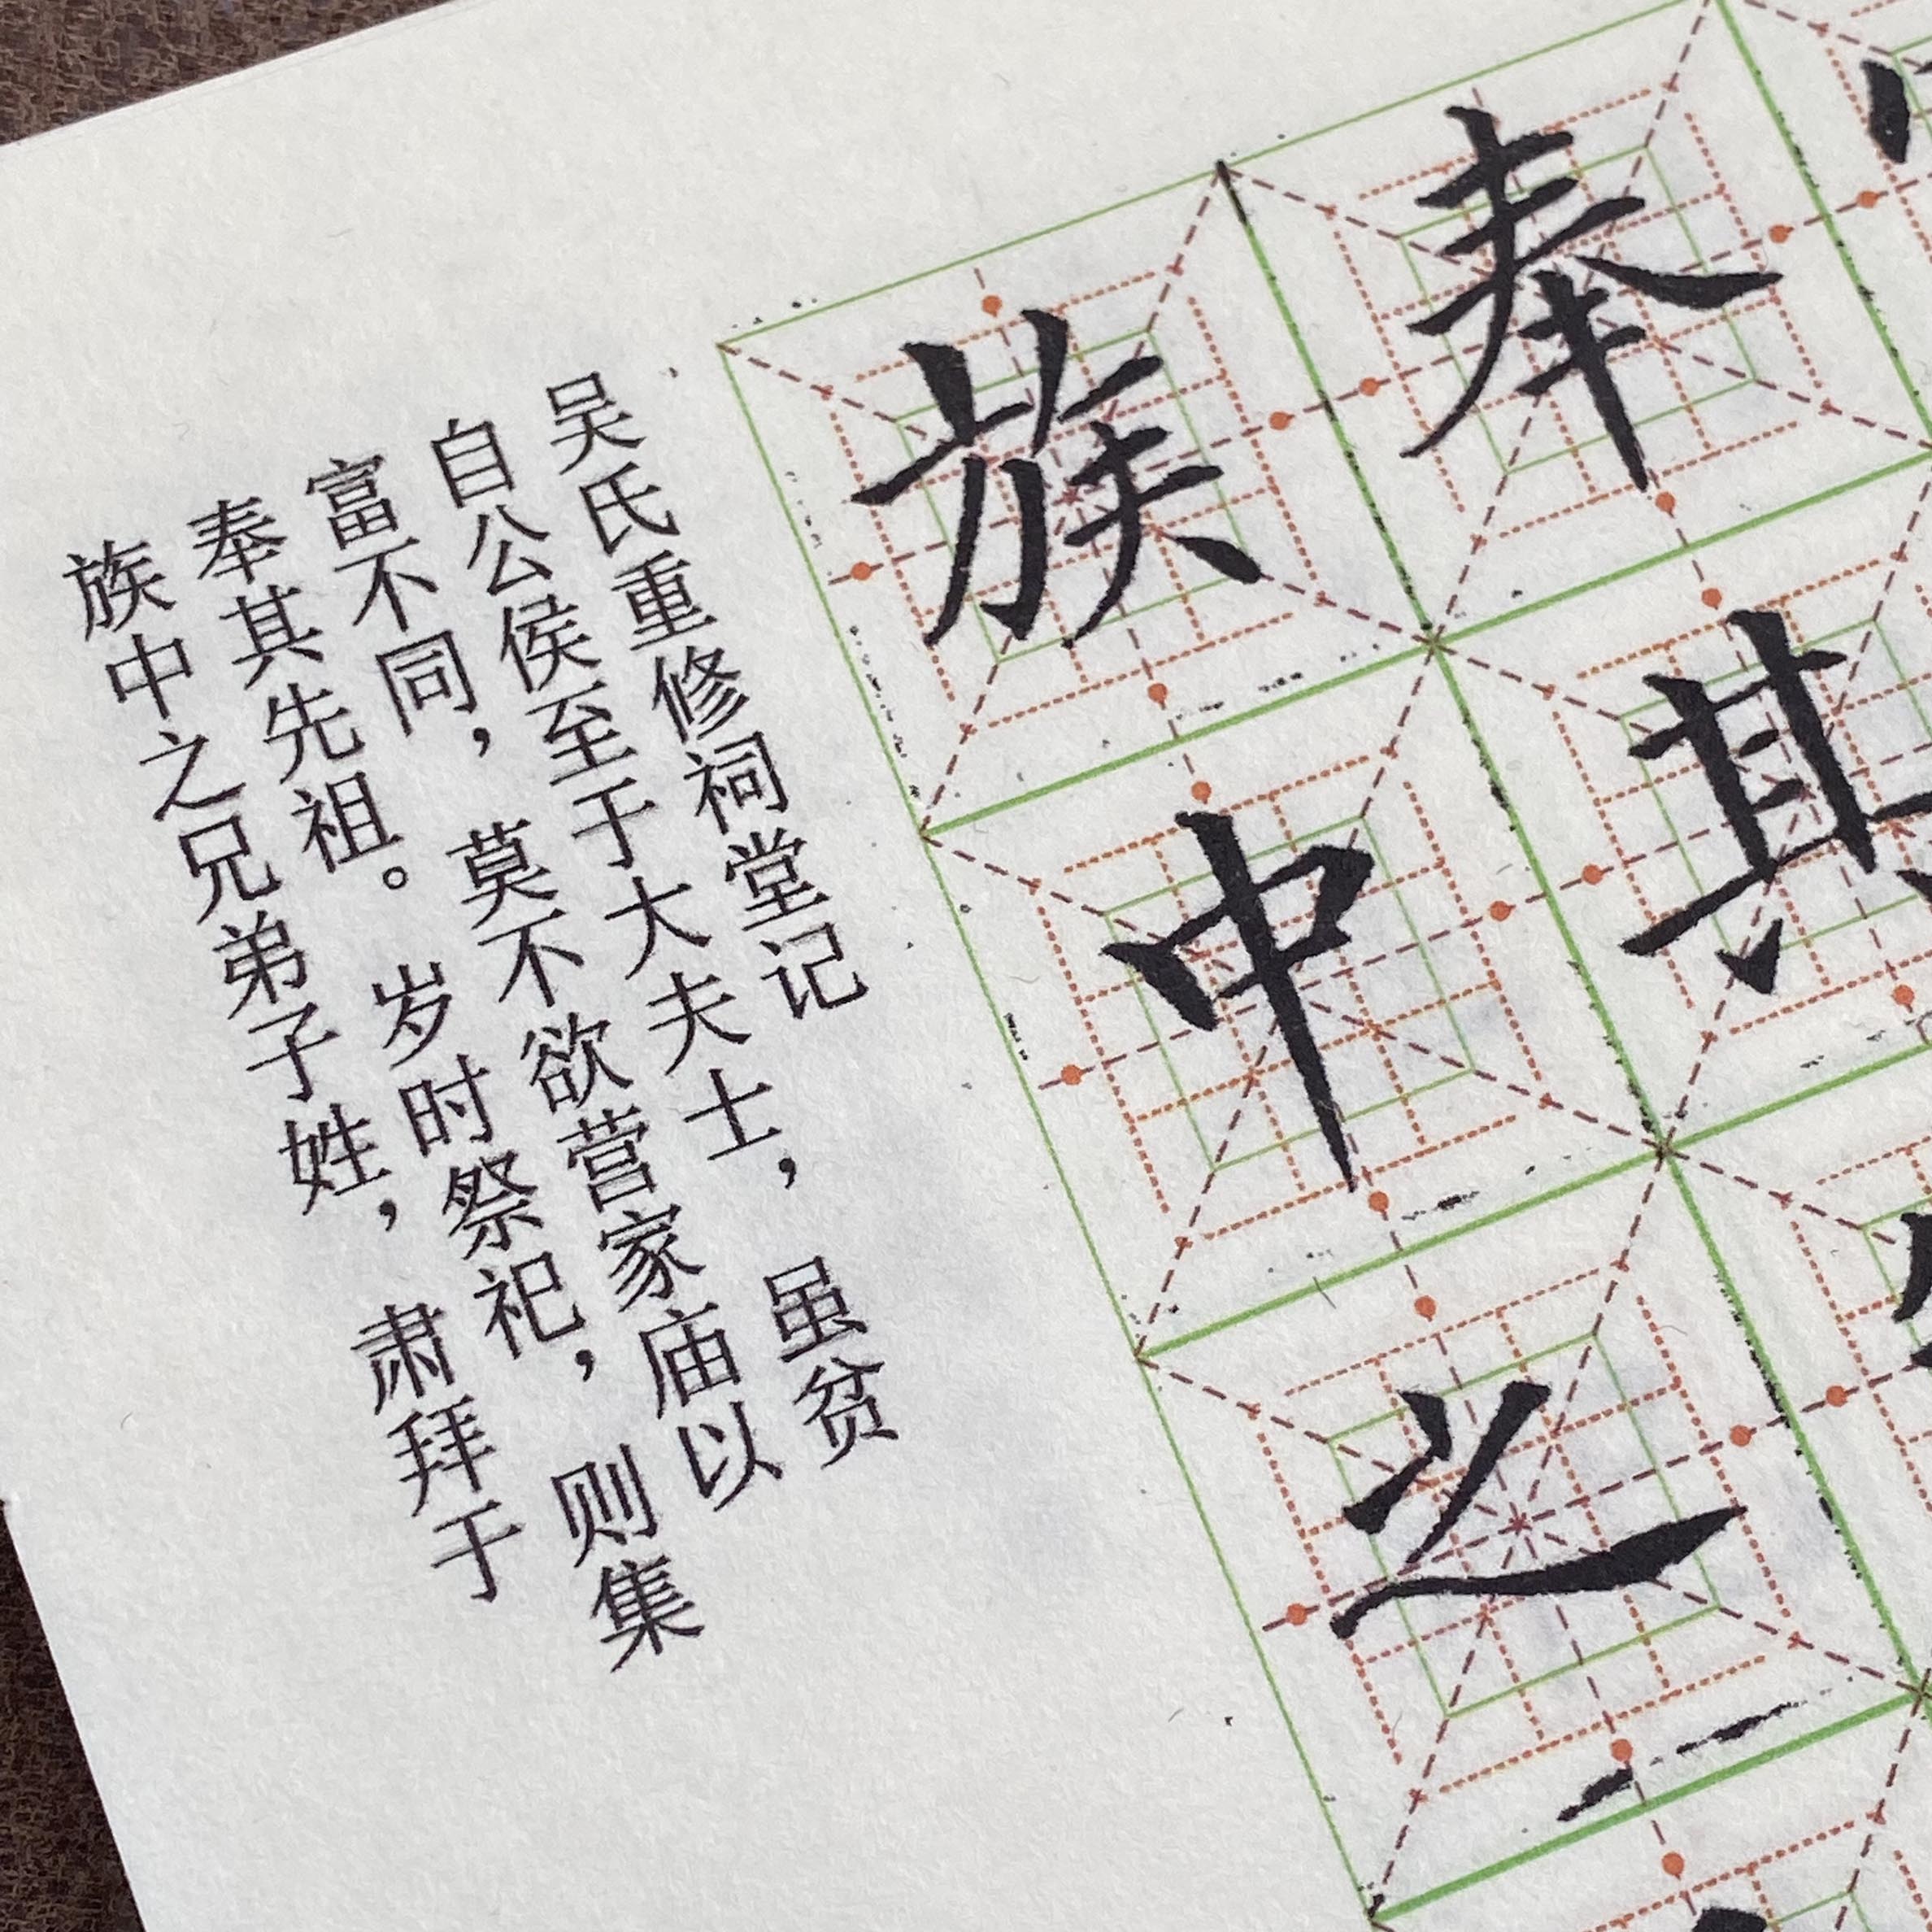 吴氏重修祠堂记
自公侯至于大夫士，虽贫
富不同，莫不欲营家庙以
奉其先祖。岁时祭祀，则集
族中之兄弟子姓，肃拜于
奉其
族中之